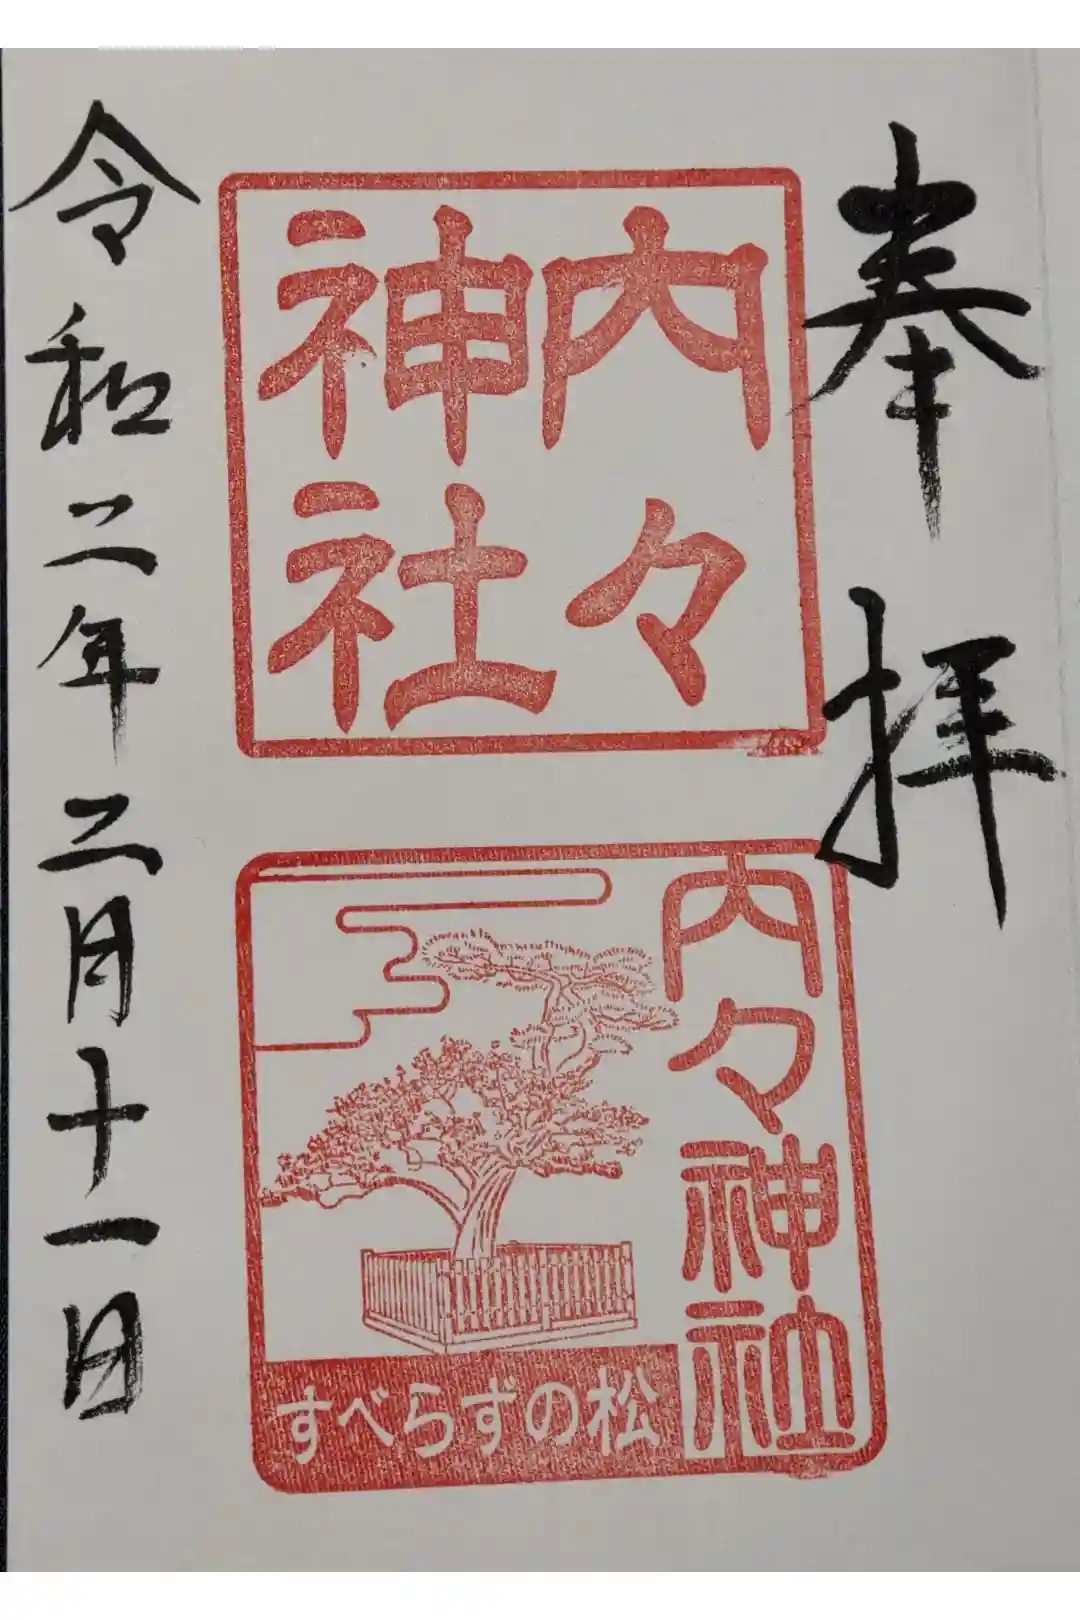 奉拝
内々
神社
内々神社
すべらずの松
令和二年三月十一日